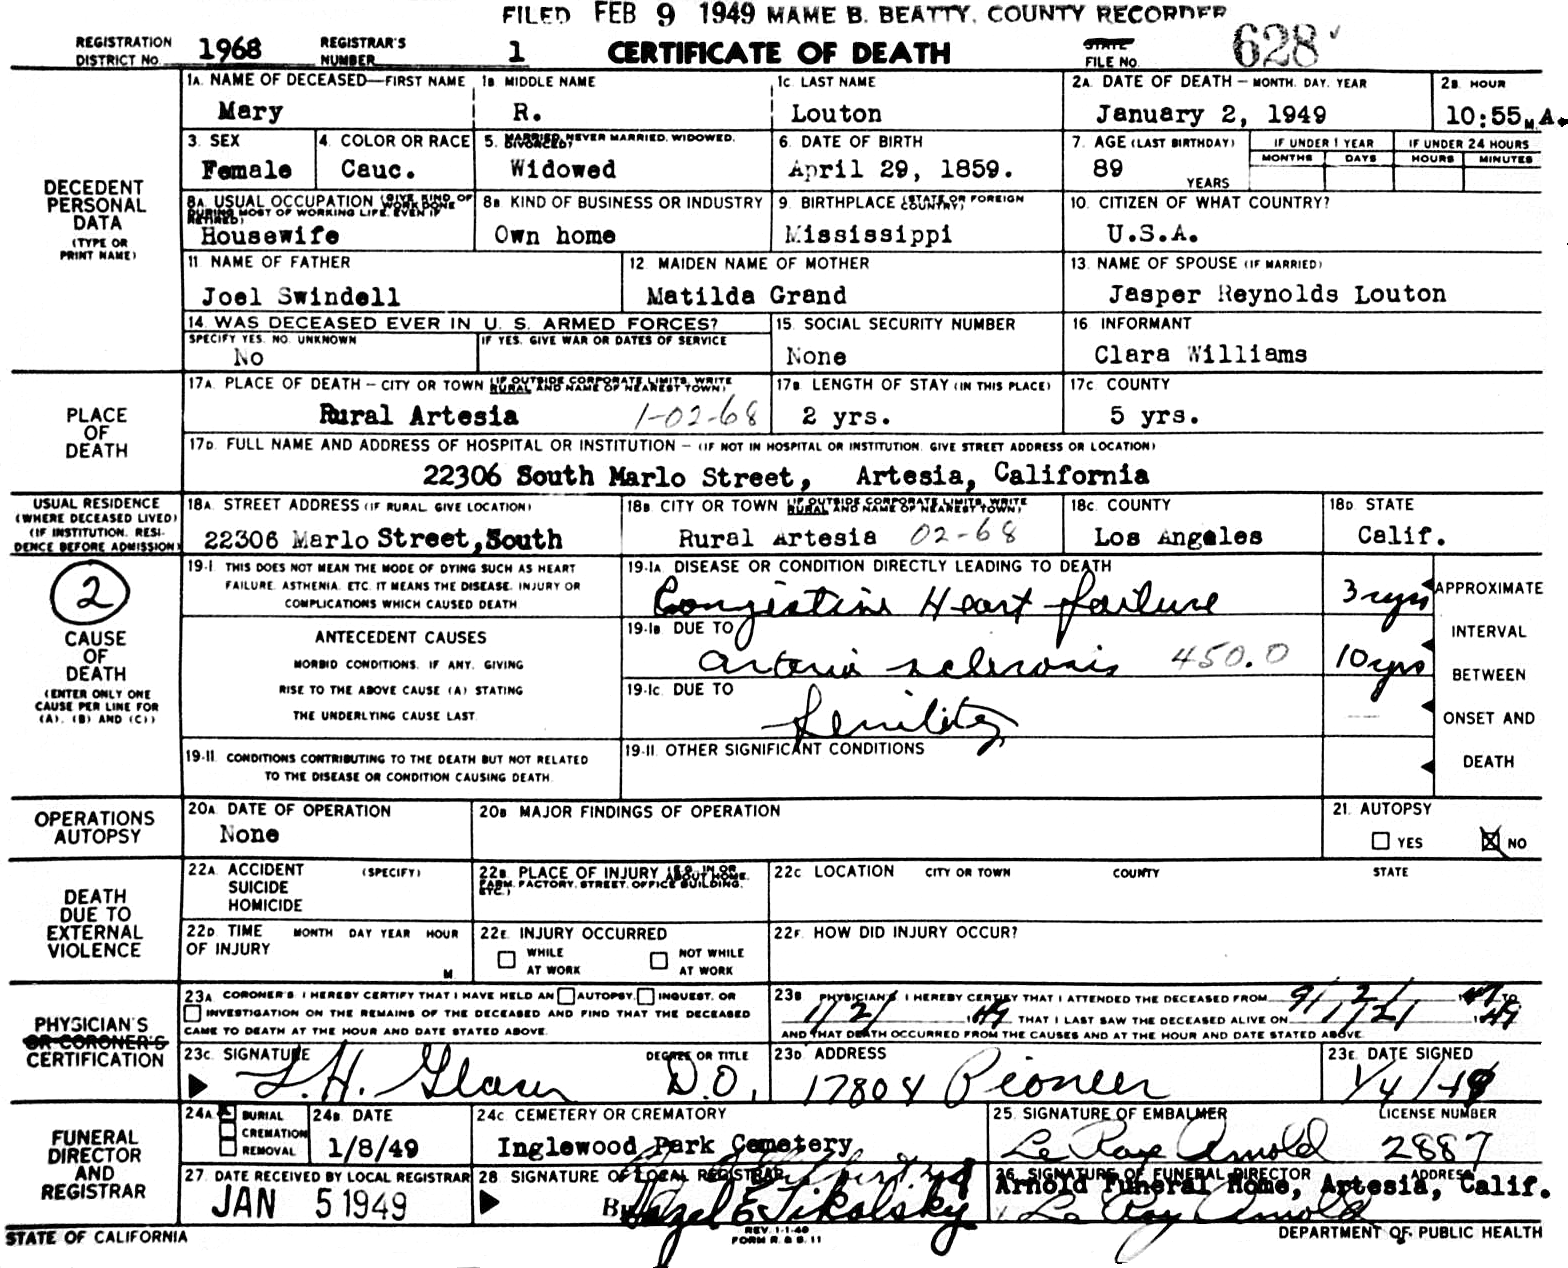 FILED FEB 9 1949 MAME B. BEATTY, COUNTY RECORDER
REGISTRATION DISTRICT NO. 1968 REGISTRAR'S NUMBER 1 CERTIFICATE OF DEATH STATE FILE NO. 628
DECEDENT PERSONAL DATA (TYPE OR PRINT NAME)
1A. NAME OF DECEASED—FIRST NAME 1B. MIDDLE NAME 1C. LAST NAME 2A. DATE OF DEATH – MONTH, DAY, YEAR 2B. HOUR
Mary R. Louton January 2, 1949 10:55 A. M
3. SEX 4. COLOR OR RACE 5. MARRIED, NEVER MARRIED, WIDOWED, DIVORCED? 6. DATE OF BIRTH 7. AGE (LAST BIRTHDAY) IF UNDER 1 YEAR IF UNDER 24 HOURS
MONTHS DAYS HOURS MINUTES
Female Cauc. Widowed April 29, 1859. 89 YEARS
8A. USUAL OCCUPATION (GIVE KIND OF WORK DONE DURING MOST OF WORKING LIFE, EVEN IF RETIRED) 8B KIND OF BUSINESS OR INDUSTRY 9. BIRTHPLACE (STATE OR FOREIGN COUNTRY) 10. CITIZEN OF WHAT COUNTRY?
Housewife Own home Mississippi U.S.A.
11 NAME OF FATHER 12 MAIDEN NAME OF MOTHER 13. NAME OF SPOUSE (IF MARRIED)
Joel Swindell Matilda Grand Jasper Reynolds Louton
14. WAS DECEASED EVER IN U. S. ARMED FORCES? 15. SOCIAL SECURITY NUMBER 16 INFORMANT
SPECIFY YES, NO, UNKNOWN IF YES, GIVE WAR OR DATES OF SERVICE
No None Clara Williams
PLACE OF DEATH
17A. PLACE OF DEATH – CITY OR TOWN (IF OUTSIDE CORPORATE LIMITS, WRITE RURAL AND NAME OF NEAREST TOWN) 17B. LENGTH OF STAY (IN THIS PLACE) 17C. COUNTY
Rural Artesia 1-02-68 2 yrs. 5 yrs.
17D. FULL NAME AND ADDRESS OF HOSPITAL OR INSTITUTION – (IF NOT IN HOSPITAL OR INSTITUTION, GIVE STREET ADDRESS OR LOCATION)
22306 South Marlo Street, Artesia, California
USUAL RESIDENCE (WHERE DECEASED LIVED) (IF INSTITUTION, RESIDENCE BEFORE ADMISSION)
18A. STREET ADDRESS (IF RURAL, GIVE LOCATION) 18B CITY OR TOWN (IF OUTSIDE CORPORATE LIMITS, WRITE RURAL AND NAME OF NEAREST TOWN) 18C. COUNTY 18D. STATE
22306 Marlo Street, South Rural Artesia 02-68 Los Angeles Calif.
2
CAUSE OF DEATH (ENTER ONLY ONE CAUSE PER LINE FOR (A), (B) AND (C))
19-I THIS DOES NOT MEAN THE MODE OF DYING SUCH AS HEART FAILURE, ASTHENIA, ETC. IT MEANS THE DISEASE, INJURY OR COMPLICATIONS WHICH CAUSED DEATH
19-1A. DISEASE OR CONDITION DIRECTLY LEADING TO DEATH
Congestive Heart failure 3 yrs
ANTECEDENT CAUSES
MORBID CONDITIONS, IF ANY, GIVING RISE TO THE ABOVE CAUSE (A) STATING THE UNDERLYING CAUSE LAST.
19-1B DUE TO
Arterio sclerosis 450.0 10 yrs
19-1C. DUE TO
Senility —
APPROXIMATE INTERVAL BETWEEN ONSET AND DEATH
19-II. CONDITIONS CONTRIBUTING TO THE DEATH BUT NOT RELATED TO THE DISEASE OR CONDITION CAUSING DEATH.
19-II. OTHER SIGNIFICANT CONDITIONS
OPERATIONS AUTOPSY
20A. DATE OF OPERATION 20B MAJOR FINDINGS OF OPERATION 21. AUTOPSY
None YES NO
DEATH DUE TO EXTERNAL VIOLENCE
22A. ACCIDENT SUICIDE HOMICIDE (SPECIFY) 22B. PLACE OF INJURY (E.G., IN OR ABOUT HOME, FARM, FACTORY, STREET, OFFICE BUILDING, ETC.) 22C LOCATION CITY OR TOWN COUNTY STATE
22D. TIME OF INJURY MONTH DAY YEAR HOUR M. 22E. INJURY OCCURRED WHILE AT WORK NOT WHILE AT WORK 22F. HOW DID INJURY OCCUR?
PHYSICIAN'S OR CORONER'S CERTIFICATION
23A CORONER'S: I HEREBY CERTIFY THAT I HAVE HELD AN AUTOPSY, INQUEST, OR INVESTIGATION ON THE REMAINS OF THE DECEASED AND FIND THAT THE DECEASED CAME TO DEATH AT THE HOUR AND DATE STATED ABOVE.
23B PHYSICIAN'S I HEREBY CERTIFY THAT I ATTENDED THE DECEASED FROM 9/2/ 47 TO
1/2/ 49 THAT I LAST SAW THE DECEASED ALIVE ON 1/2/ 1949
AND THAT DEATH OCCURRED FROM THE CAUSES AND AT THE HOUR AND DATE STATED ABOVE.
23C. SIGNATURE DEGREE OR TITLE 23D. ADDRESS 23E. DATE SIGNED
L.H. D.O. 17804 Pioneer 1/4/49
FUNERAL DIRECTOR AND REGISTRAR
24A BURIAL CREMATION REMOVAL 24B. DATE 24C. CEMETERY OR CREMATORY 25. SIGNATURE OF EMBALMER LICENSE NUMBER
1/8/49 Inglewood Park Cemetery Le Roy Arnold 2887
27. DATE RECEIVED BY LOCAL REGISTRAR 28 SIGNATURE OF LOCAL REGISTRAR 26. SIGNATURE OF FUNERAL DIRECTOR ADDRESS
JAN 5 1949 By Hazel E. Tikalsky Arnold Funeral Home, Artesia, Calif.
Le Roy Arnold
STATE OF CALIFORNIA REV. 1-1-49 FORM R. & S. 11 DEPARTMENT OF PUBLIC HEALTH